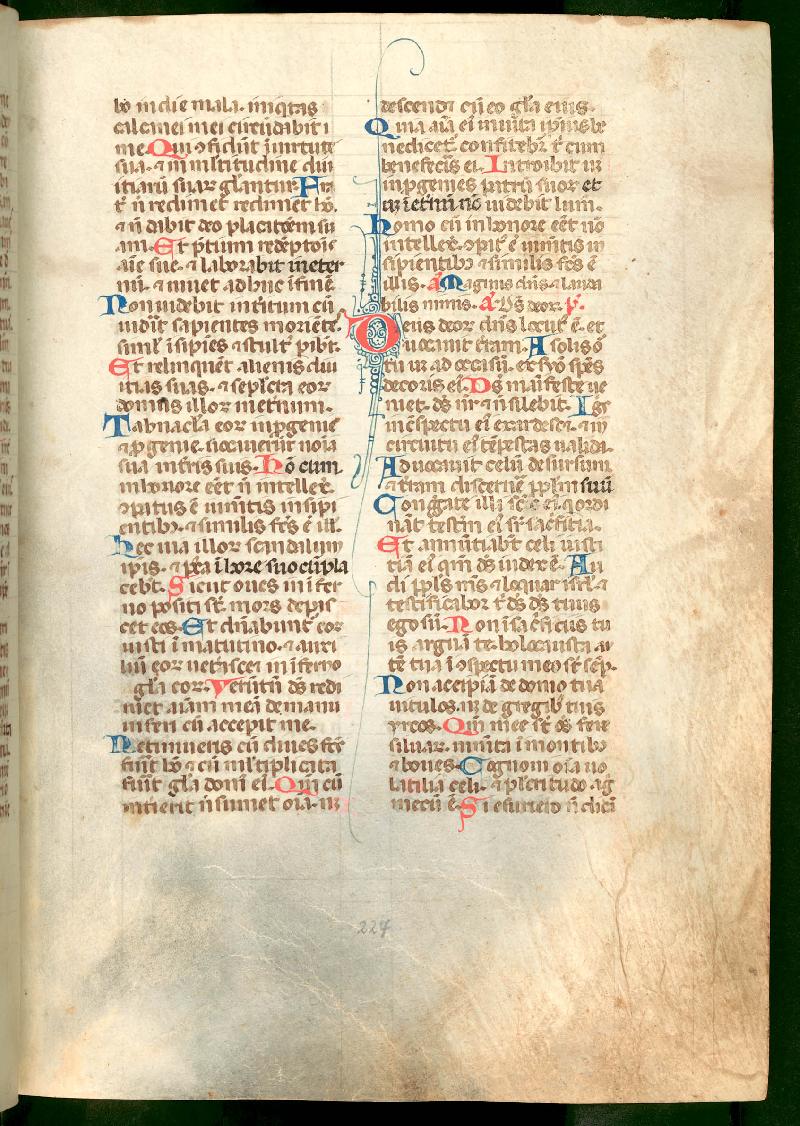 bo in die mala. iniqtas
calcanei mei circūdabit
me. Qui ɔfidūt ī uirtute
sua. ⁊ in mltitudine diui
itiarū suarꝝ gl'antur. Fr̄
t̄ n̄ redimet redimet ho.
⁊ n̄ dabit deo placatōem su
am. Et p̄tium redēptōis
aīe sue. ⁊ laborabit in eter
nū. ⁊ uiuet adhuc ī finē
Non uidebit intitum cū
uidit sapientes moriēte.
siml' īsipiēs ⁊ stult' pībt.
Et relinquēt alienis diui
itias suas. ⁊ seplcra eorꝝ
domus illorꝝ in et̄num.
Tabnacla eorꝝ in pgenie
⁊ pgenie. uocauerūt noīa
sua in t̄ris suis. Hō cum
in honore eēt n̄ intellex̄.
ɔpatus ē iumtis insipi
entibꝫ. ⁊ similis fcs ē ill'.
Hec uia illorꝝ scandalum
ipis. ⁊ p̄ea ī hore suo cūpla
cebt. Sicut oues in ifer
no positi st̄. mors depas
cet eos. Et dn̄abunt' eorꝝ
iusti in matutino. ⁊ auxi
liū eorꝝ ueterascet in īferno
a gl'a eorꝝ. Verūtn̄ ds redi
met aīam meā de manu
inferi cū accepit me.
Ne timueris cū diues fcs
fuit ho ⁊ cū mltiplicata
fuit gl'a dom' ei'. Qm̄ cū
intierit n̄ sumet oīa. nꝫ
descendt cū eo gl'a eius.
Quia aīa ei' in uita ipius be
nedicet'. confitebr' t' cum
benefecis ei. Introibit us
in pgenies patrū suorꝝ et
usꝫ ī etnū nō uidebit lum.
Homo cū in honore eēt nō
intellex̄. ɔpat' ē iumtis in
sipientibꝫ ⁊ similis fcs ē
illis. a. Magnus dn̄s ⁊ lauda
bilis nimis. a. Ds deorꝝ. p̄.
Deus deorꝝ dn̄s locut' ē. et
uocauit t̄ram. A solis o
rtu usꝫ ad occasū. ex syō spēs
decoris ei'. Ds māifeste ue
niet. ds nr̄ ⁊ n̄ silebit. Igs
in ɔspectu ei' exardescꝫ. ⁊ in
circuitu ei' tēpestas ualida.
Aduocauit celū desursum.
⁊ t̄ram discernē pplm suū
Congregate illi scōs ei' q ordi
nāt testm̄ ei' sr̄ sacficia.
Et annūtiabt celi iusti
tiā ei' qm̄ ds iudex ē. Au
di ppls ms ⁊ loquar isrl' ⁊
testificabor t' ds ds tuus
ego sū. Non ī sacficiis tu
is arguā te. holocausta au
tē tua ī ɔspectu meo st̄ semp.
Non accipiā de domo tua
uitulos. nꝫ de gregibꝫ tuis
yrcos. Qm̄ mee st̄ oēs fere
siluarꝝ. iumta ī montibꝫ
⁊ boues. Cognoui oīa uo
latilia celi. ⁊ plcritudo ag
mecū ē. Si esuriero n̄ dicā
224